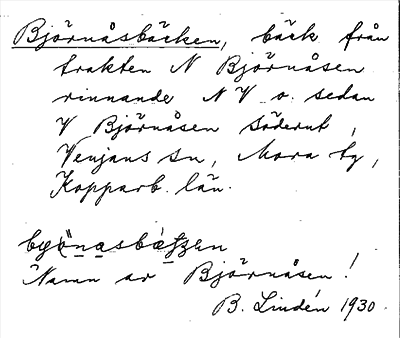 Björnåsbäcken, bäck från
trakten N Björnåsen
rinnande NV o. sedan
V Björnåsen söderut,
Venjans sn, Mora tg,
Kopparb. län.
Namn av Björnåsen!
B. Lindén 1930.